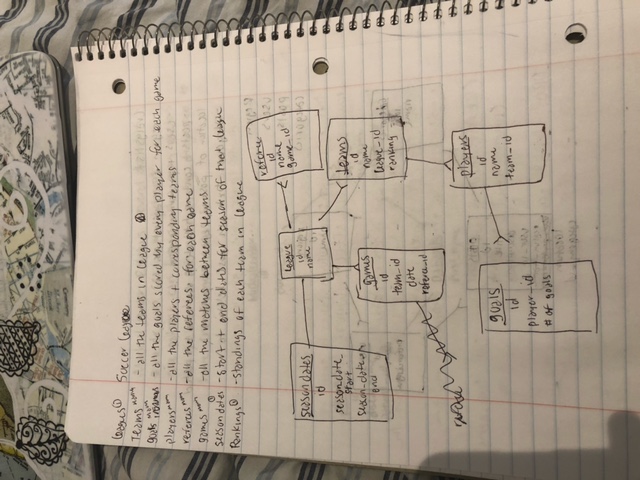 Soccer League
Teams - all the teams in league
goals - all the goals scored by every player for each game
players - all the players + corresponding teams
referees - all the referees for each game
games - all the matches between teams
season dates - start + end dates for season of that league
Rankings - standings of each team in league
referee
id
name
game_id
league
id
name
season dates
id
season_date_
start
season_date_
end
teams
id
name
league_id
ranking
games
id
team_id
date
referee_id
players
id
name
team_id
goals
id
player_id
# of goals